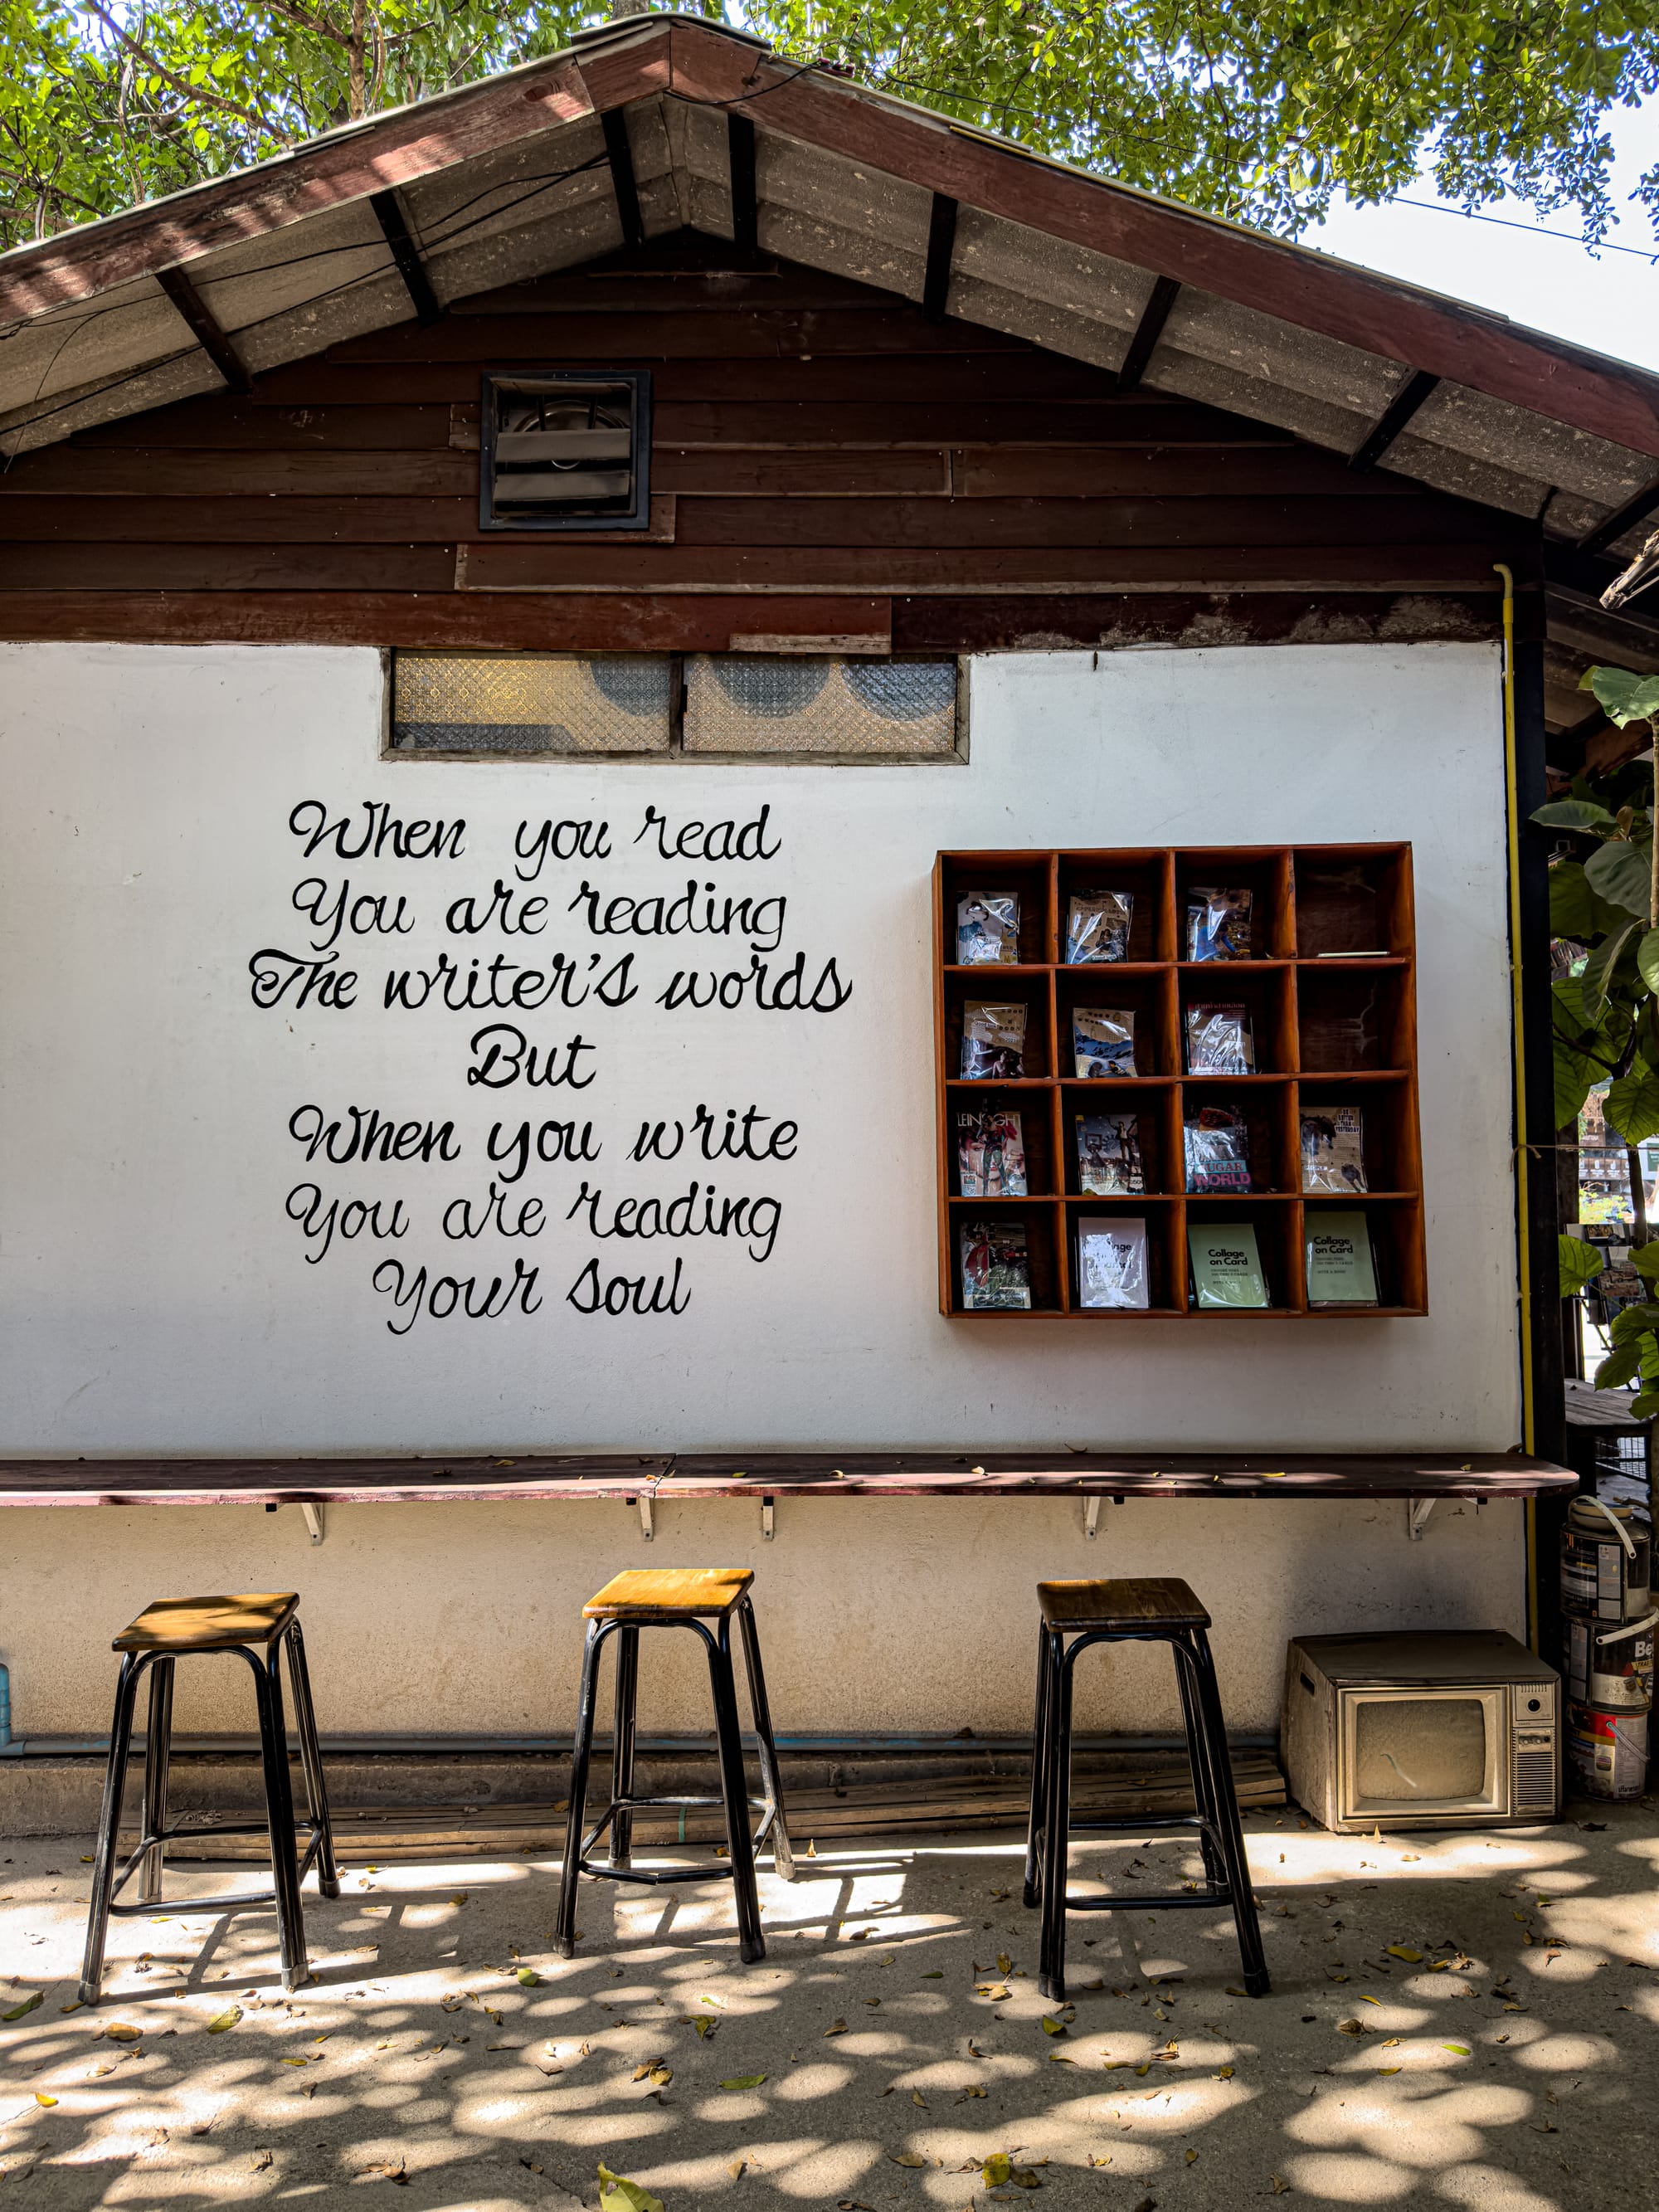 When you read
You are reading
The writer's words
But
When you write
You are reading
Your soul
UGAR
WORLD
Collage
on Card
Collage
on Card
Be